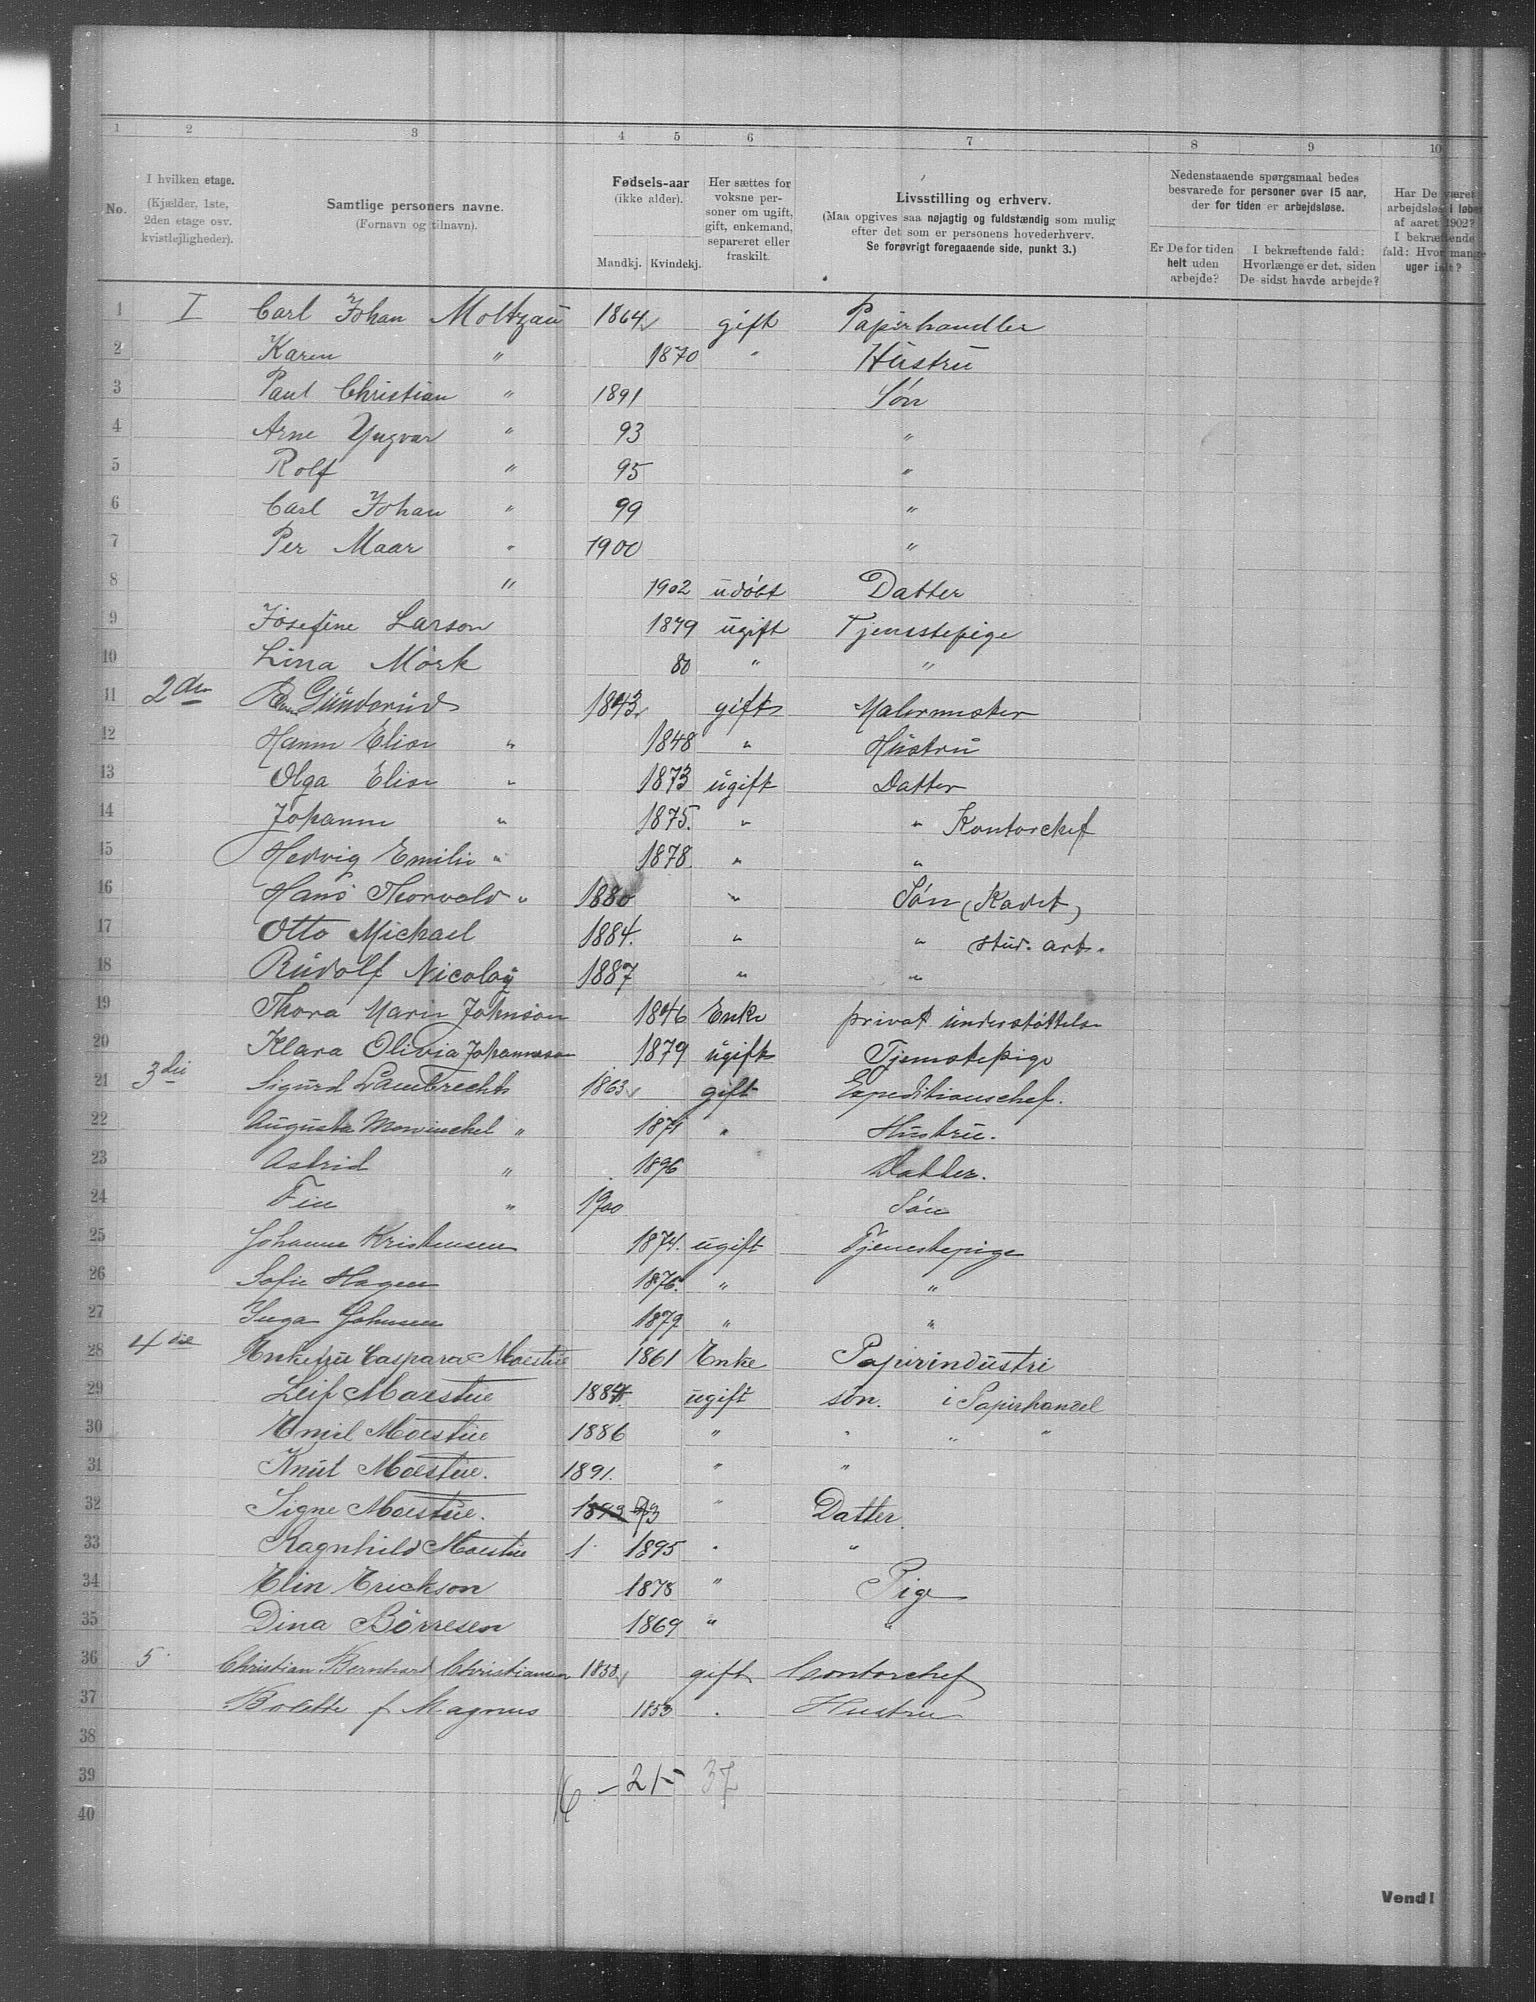 1 2 3 4 5 6 7 8 9 10
No. I hvilken etage. (Kjælder, 1ste, 2den etage osv. kvistlejligheder).
Samtlige personers navne. (Fornavn og tilnavn).
Fødsels-aar (ikke alder). Mandkj. Kvindekj.
Her sættes for voksne personer om ugift, gift, enkemand, separeret eller fraskilt.
Livsstilling og erhverv. (Maa opgives saa nøjagtig og fuldstændig som mulig efter det som er personens hovederhverv. Se forøvrigt foregaaende side, punkt 3.)
Nedenstaaende spørgsmaal bedes besvarede for personer over 15 aar, der for tiden er arbejdsløse.
Er De for tiden helt uden arbejde?
I bekræftende fald: Hvorlænge er det, siden De sidst havde arbejde?
Har De været arbejdsløs i løbet af aaret 1902? I bekræftende fald: Hvor mange uger ialt?
1 I Carl Johan Moltzau 1864 gift Papirhandler
2 Karen " 1870 " Hustru
3 Paul Christian " 1891 Søn
4 Arne Yngvar " 93 "
5 Rolf " 95 "
6 Carl Johan " 99 "
7 Per Maar " 1900 "
8 " 1902 udöbt Datter
9 Josefine Larson 1879 ugift Tjenstepige
10 Lina Mörk 80 " "
11 2den Gunderud 1843 gift Malermester
12 Hanne Elise " 1848 " Hustru
13 Olga Elise " 1873 ugift Datter
14 Johanne " 1875. " " Kontorchef
15 Hedvig Emilie " 1878 " "
16 Hans Thorvald " 1880 " Søn (Kadet)
17 Otto Michael 1884. " " stud. art.
18 Rudolf Nicolay 1887 " "
19 Thora Marie Johnson 1846 Enke privat understøttelse
20 Klara Olivia Johannesson 1879 ugift Tjenestepige
21 3die Sigurd Lambrechts 1863 gift Expeditionschef.
22 Augusta Mowinckel " 1871 " Hustru.
23 Astrid " 1896 Datter.
24 Fin " 1900 Søn
25 Johanne Kristensen 1874. ugift Tjenestepige
26 Sofie Hagen 1876. " "
27 Inga Johnsen 1879 " "
28 4die Enkefru Caspara Moestue 1861 Enke Papirindustri
29 Leif Moestue 1884. ugift sön. i Papirhandel
30 Emil Moestue 1886 " " " "
31 Knut Moestue. 1891. " "
32 Signe Moestue. 1893 93 " Datter.
33 Ragnhild Moestue 1 1895 " "
34 Elin Erickson 1878 " Pige
35 Dina Börresen 1869 " "
36 5 Christian Bernhard Christiansen 1858 gift Contorchef
37 Bolette f Magnus 1853 " Hustru
38
39 16 – 21 – 37
40
Vend!